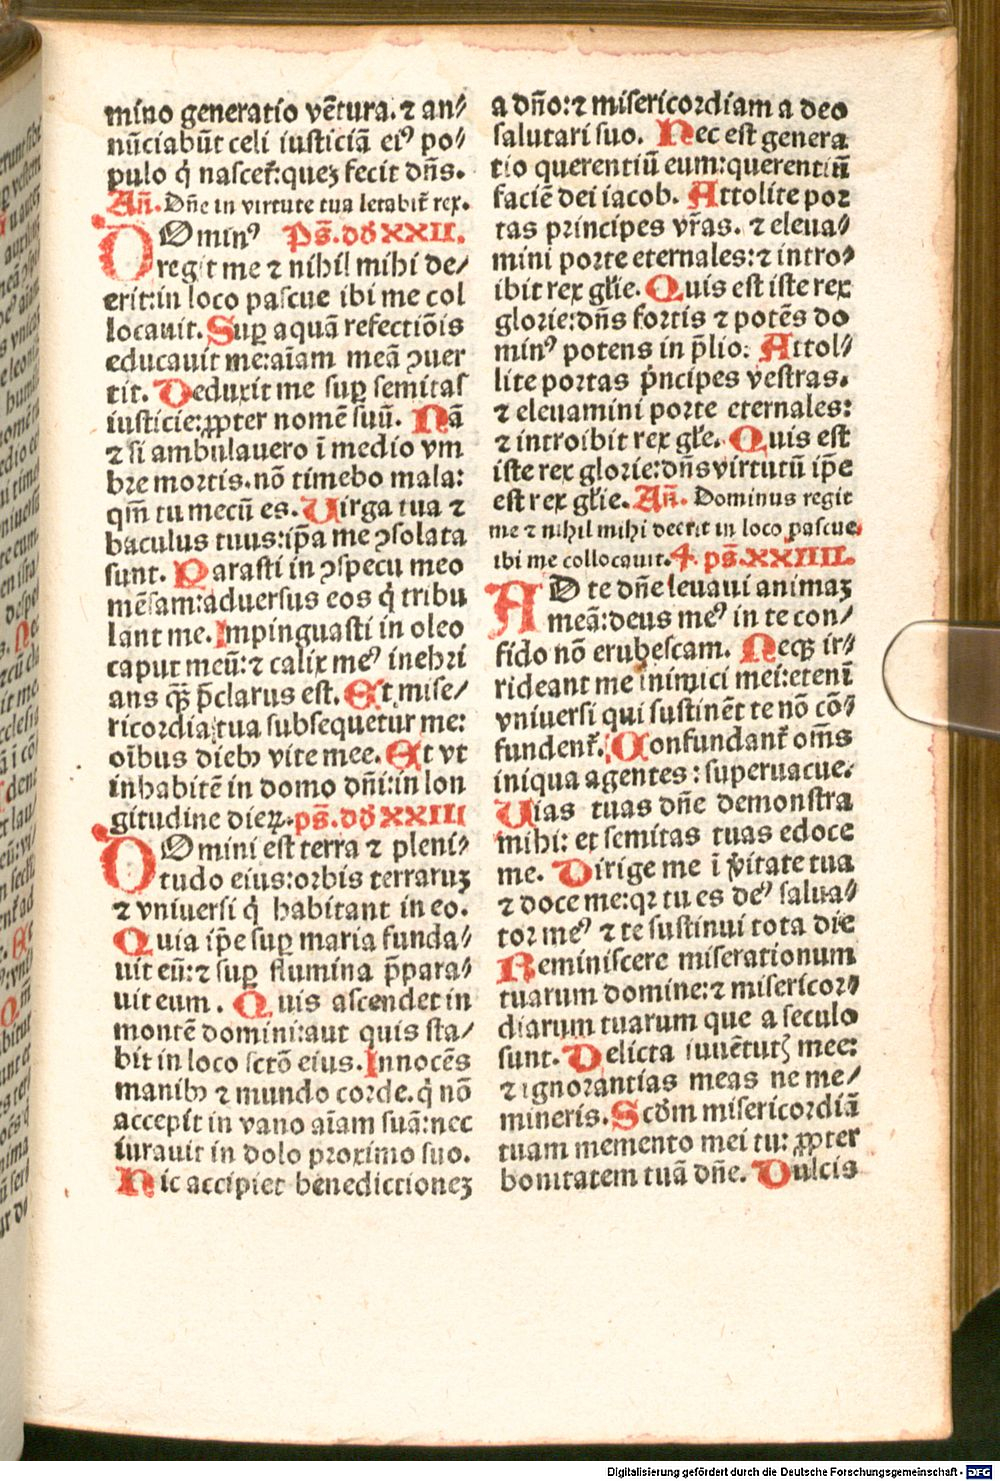 mino generatio vẽtura. ⁊ an⸗
nũciabũt celi iusticiã eiꝰ po⸗
pulo q̇ nascet᷑: quez fecit dñs.
Añ. Dñe in virtute tua letabit᷑ rex.
DOminꝰ Ps̃. dd XXII.
regit me ⁊ nihil mihi de⸗
erit: in loco pascue ibi me col
locauit. Sup aquã refectiõis
educauit me: aĩam meã ꝯuer
tit. Deduxit me sup semitas
iusticie: ꝓpter nomẽ suũ. Nã
⁊ si ambulauero ĩ medio vm
bre mortis. nõ timebo mala:
qm̃ tu mecũ es. Uirga tua ⁊
baculus tuus: ip̃a me ꝯsolata
sunt. Parasti in ꝯspecu meo
mẽsam: aduersus eos q̇ tribu
lant me. Impinguasti in oleo
caput meũ: ⁊ calix meꝰ inebri
ans qꝫ p̃clarus est. Et mise⸗
ricordia tua subsequetur me:
oĩbus dieb⁹ vite mee. Et vt
inhabitẽ in domo dñi: in lon
gitudine dieꝝ. ps̃. dd XXIII
DOmini est terra ⁊ pleni⸗
tudo eius: orbis terraruz
⁊ vniuersi q̇ habitant in eo.
Quia ip̃e sup maria funda⸗
uit eũ: ⁊ sup flumina p̃para⸗
uit eum. Quis ascendet in
montẽ domini: aut quis sta⸗
bit in loco sctõ eius. Innocẽs
manib⁹ ⁊ mundo corde. q̇ nõ
accepit in vano aĩam suã: nec
iurauit in dolo proximo suo.
Hic accipiet benedictionez
a dño: ⁊ misericordiam a deo
salutari suo. Nec est genera
tio querentiũ eum: querentiũ
faciẽ dei iacob. Attolite por
tas principes vr̃as. ⁊ eleua⸗
mini porte eternales: ⁊ intro⸗
ibit rex gl̃ie. Quis est iste rex
glorie: dñs fortis ⁊ potẽs do
minꝰ potens in p̃lio: Attol⸗
lite portas pṅcipes vestras.
⁊ eleuamini porte eternales:
⁊ introibit rex gl̃e. Quis est
iste rex glorie: dñs virtutũ ip̃e
est rex gl̃ie. Añ. Dominus regit
me ⁊ nihil mihi deerit in loco pascue
ibi me collocauit. 4. ps̃. XXIIII.
AD te dñe leuaui animaz
meã: deus meꝰ in te con⸗
fido nõ erubescam. Neqꝫ ir⸗
rideant me inimici mei: etenĩ
vniuersi qui sustinẽt te nõ cõ⸗
fundent᷑. Confundant᷑ om̃s
iniqua agentes: superuacue.
Uias tuas dñe demonstra
mihi: et semitas tuas edoce
me. Dirige me ĩ ṽitate tua
⁊ doce me: qꝛ tu es deꝰ salua⸗
tor meꝰ ⁊ te sustinui tota die
Reminiscere miserationum
tuarum domine: ⁊ misericor⸗
diarum tuarum que a seculo
sunt. Delicta iuuẽtutꝭ mee:
⁊ ignorantias meas ne me⸗
mineris. Scdm̃ misericordiã
tuam memento mei tu: ꝓpter
bonitatem tuã dñe. Dulcis
Digitalisierung gefördert durch die Deutsche Forschungsgemeinschaft - DFG